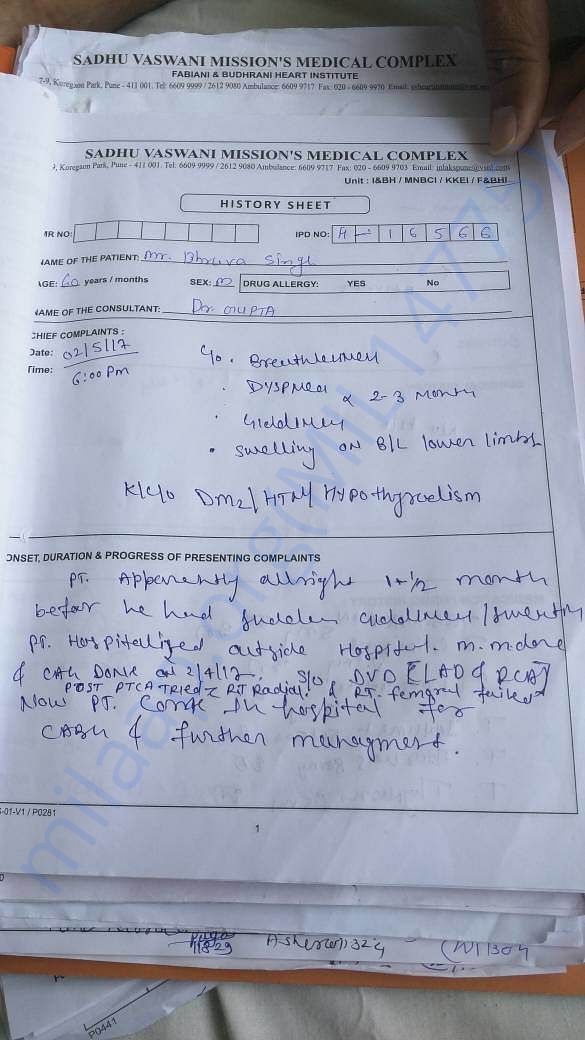 SADHU VASWANI MISSION'S MEDICAL COMPLEX
FABIANI & BUDHRANI HEART INSTITUTE
7-9, Koregaon Park, Pune - 411 001. Tel: 6609 9999 / 2612 9080 Ambulance: 6609 9717 Fax: 020 - 6609 9970 Email:
SADHU VASWANI MISSION'S MEDICAL COMPLEX
9, Koregaon Park, Pune - 411 001. Tel: 6609 9999 / 2612 9080 Ambulance: 6609 9717 Fax: 020 - 6609 9703 Email: inlakspune@vsnl.com
Unit : I&BH / MNBCI / KKEI / F&BHI
HISTORY SHEET
MR NO: IPD NO: A - 1 6 5 6 6
NAME OF THE PATIENT: Mr. Dhruva Singh
AGE: 60 years / months SEX: M DRUG ALLERGY: YES No
NAME OF THE CONSULTANT: Dr. GUPTA
CHIEF COMPLAINTS :
Date: 02/5/17
Time: 6:00 Pm
C/o. Breathlessness
. Dyspnea x 2-3 Month
. Giddiness
. Swelling on B/L lower limbs
K/C/O DM2/HTN/Hypothyroidism
ONSET, DURATION & PROGRESS OF PRESENTING COMPLAINTS
PT. Apparently allright 1-1/2 month
before he had sudden Giddiness/sweating
PT. Hospitalized outside Hospital. M.M. done
& CAG Done on 2/4/17. S/O DVD [LAD & RCA]
POST PTCA TRIED c RT Radial & RT. femoral failed
Now PT. Come in hospital for
CABG & further managment.
S-01-V1 / P0281
1
11829
11324
P0441
milaap.org(MIL147775)